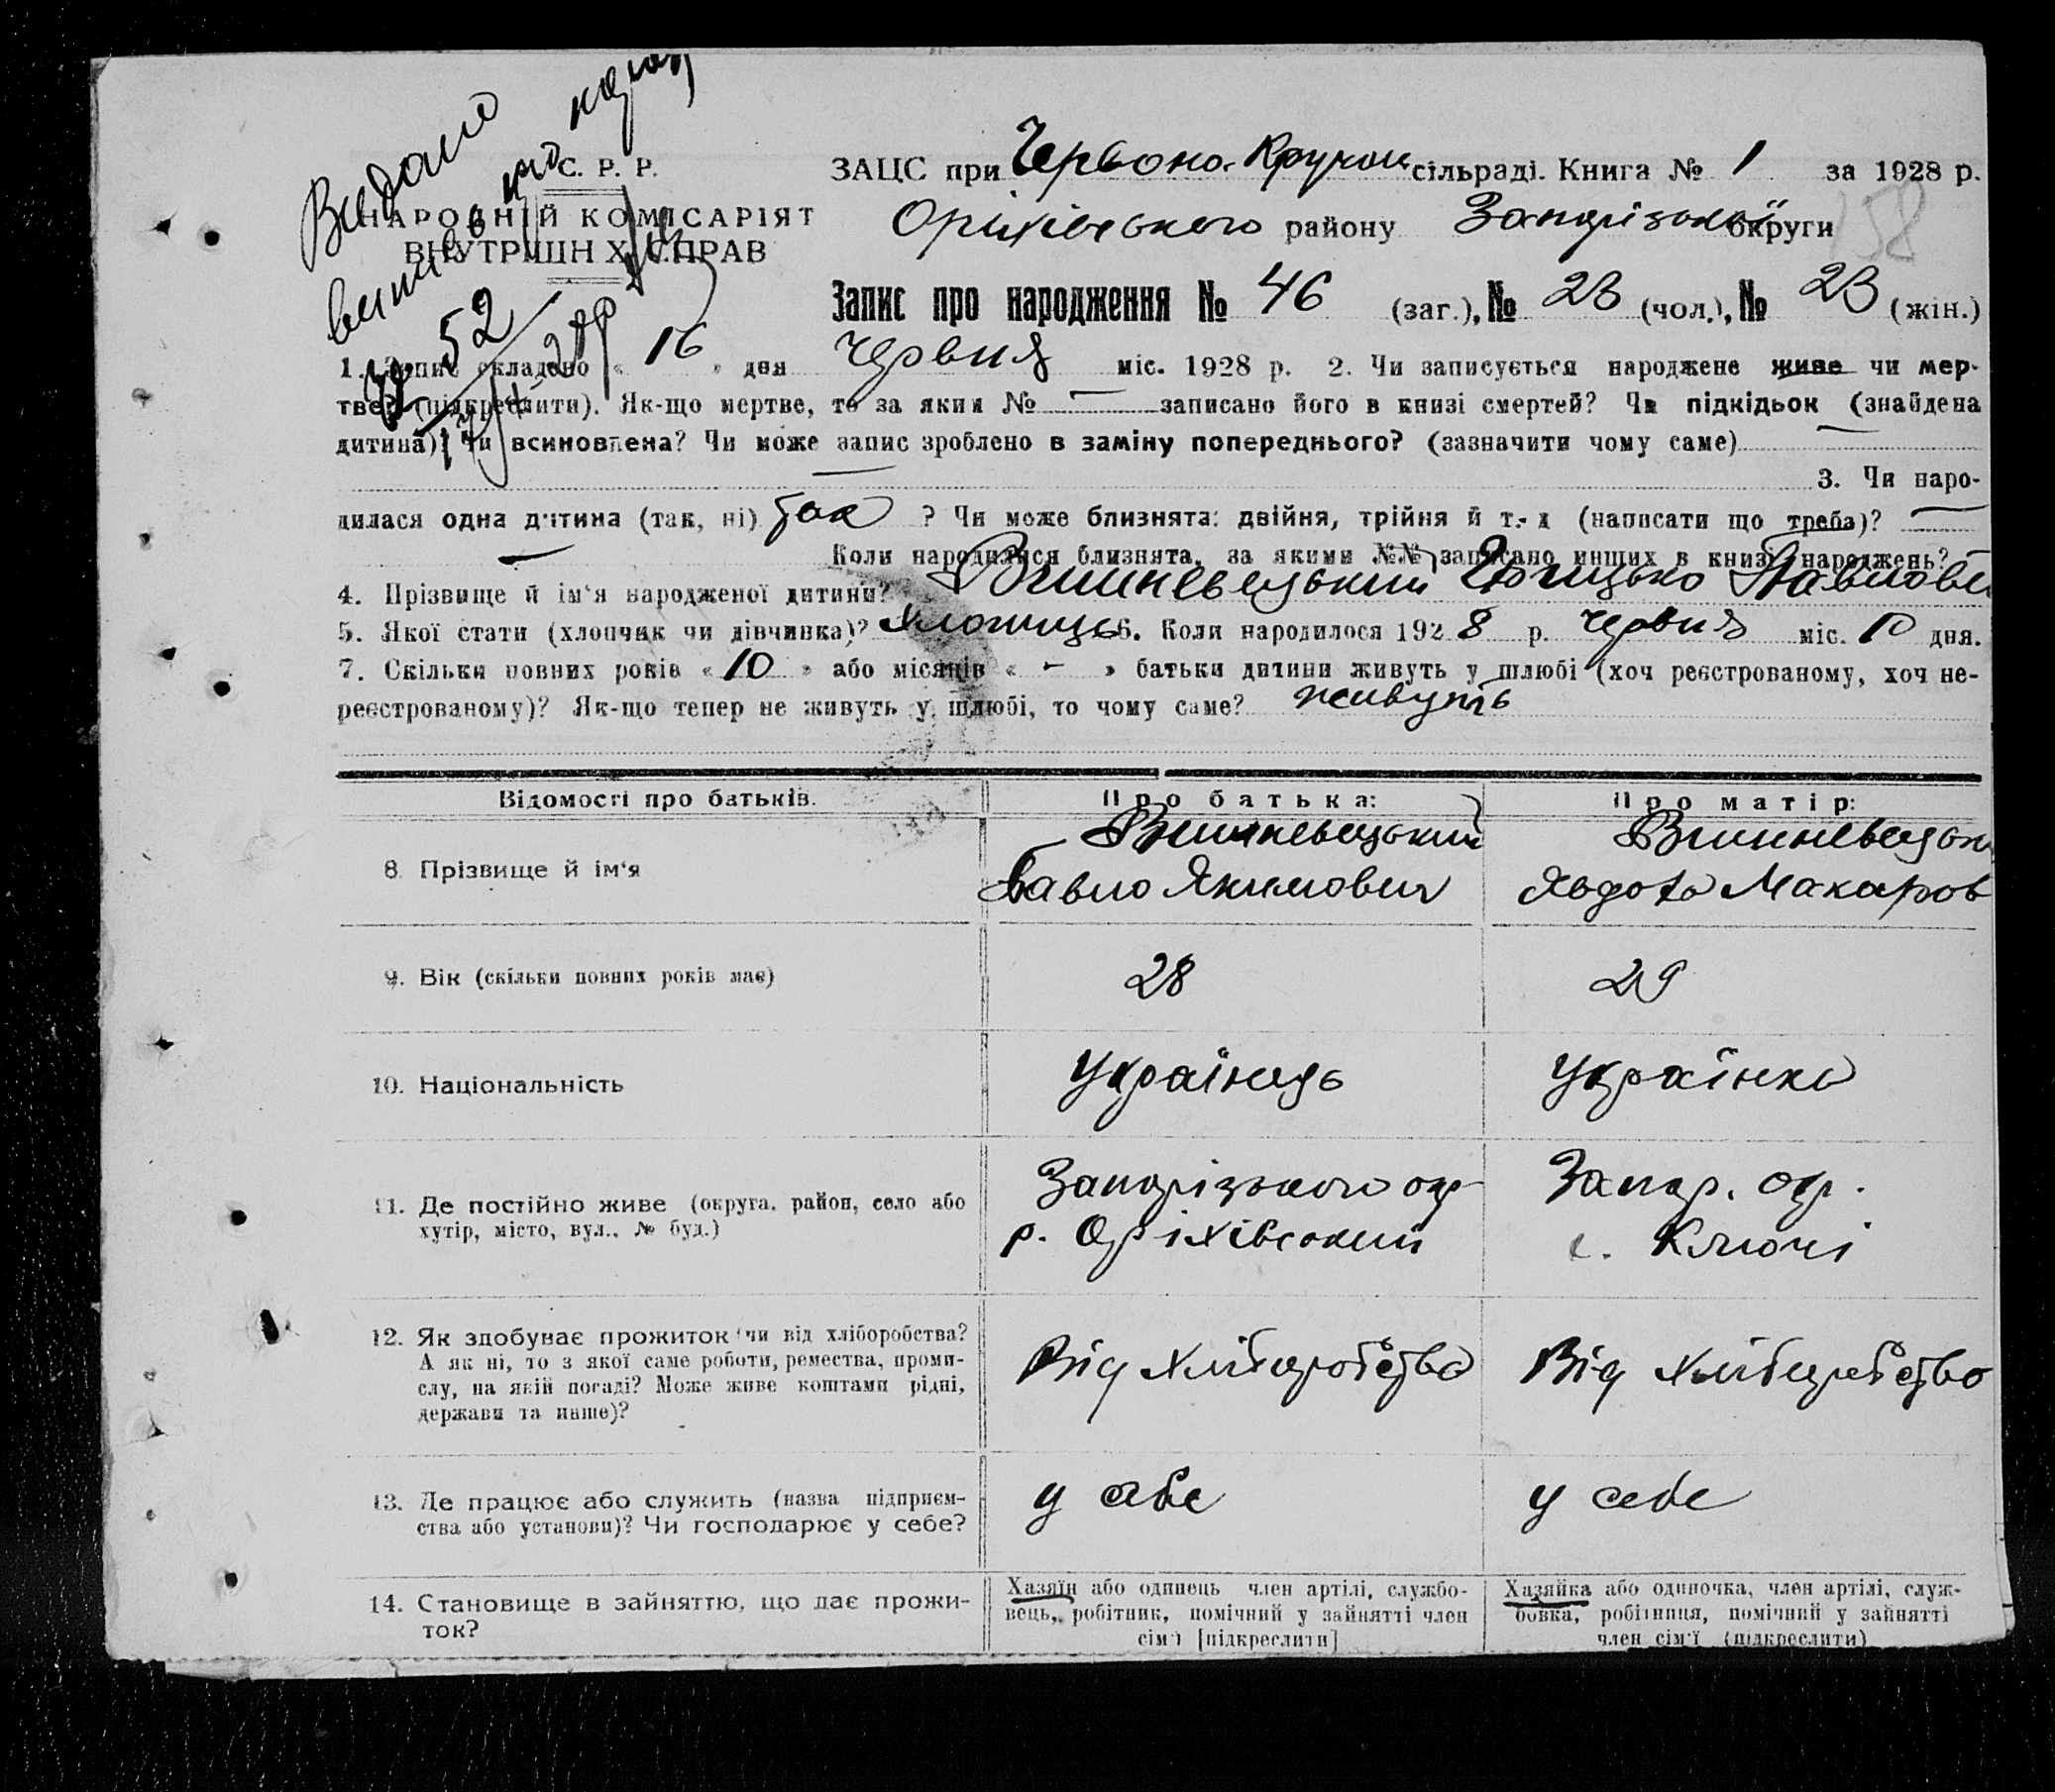 Видано
С. Р. Р.
НАРОДНІЙ КОМІСАРІЯТ
ВНУТРІШНІХ СПРАВ
52
ЗАЦС при Червоно-Кручан сільраді. Книга № 1 за 1928 р.
Оріхівського району Запорізької округи
158
Запис про народження № 46 (заг.), № 23 (чол.), № 23 (жін.)
1. Запис складено « 16 » дня червня міс. 1928 р. 2. Чи записується народжене живе чи мер-
тве? (підкреслити). Як-що мертве, то за яким № — записано його в книзі смертей? Чи підкідьок (знайдена
дитина)? Чи всиновлена? Чи може запис зроблено в заміну попереднього? (зазначити чому саме) —
— 3. Чи наро-
дилася одна дитина (так, ні) так ? Чи може близнята: двійня, трійня й т.-д (написати що треба)? —
— Коли народилися близнята, за якими №№ записано инших в книзі народжень?
4. Прізвище й ім'я народженої дитини? Вишневецький Грицько Павлови
5. Якої стати (хлопчик чи дівчинка)? хлопець 6. Коли народилося 1928 р. червня міс. 10 дня.
7. Скільки повних років « 10 » або місяців « — » батьки дитини живуть у шлюбі (хоч реєстрованому, хоч не-
реєстрованому)? Як-що тепер не живуть у шлюбі, то чому саме? живуть
Відомості про батьків. Про батька: Про матір:
8. Прізвище й ім'я Вишневецький Павло Якимович Вишневецьк Явдоха Макаров
9. Вік (скільки повних років має) 28 29
10. Національність Українець Українка
11. Де постійно живе (округа, район, село або
хутір, місто, вул., № буд.)
Запорізького окр
р. Оріхівський
Запор. окр.
с. Ключі
12. Як здобуває прожиток (чи від хліборобства?
А як ні, то з якої саме роботи, ремества, проми-
слу, на якій посаді? Може живе коштами рідні,
держави та инше)?
Від хліборобства Від хліборобство
13. Де працює або служить (назва підприєм-
ства або установи)? Чи господарює у себе?
у себе у себе
14. Становище в зайняттю, що дає прожи-
ток?
Хазяїн або одинець член артілі, службо-
вець, робітник, помічний у зайнятті член
сім'ї [підкреслити]
Хазяйка або одиночка, член артілі, служ-
бовка, робітниця, помічний у зайнятті
член сім'ї (підкреслити)